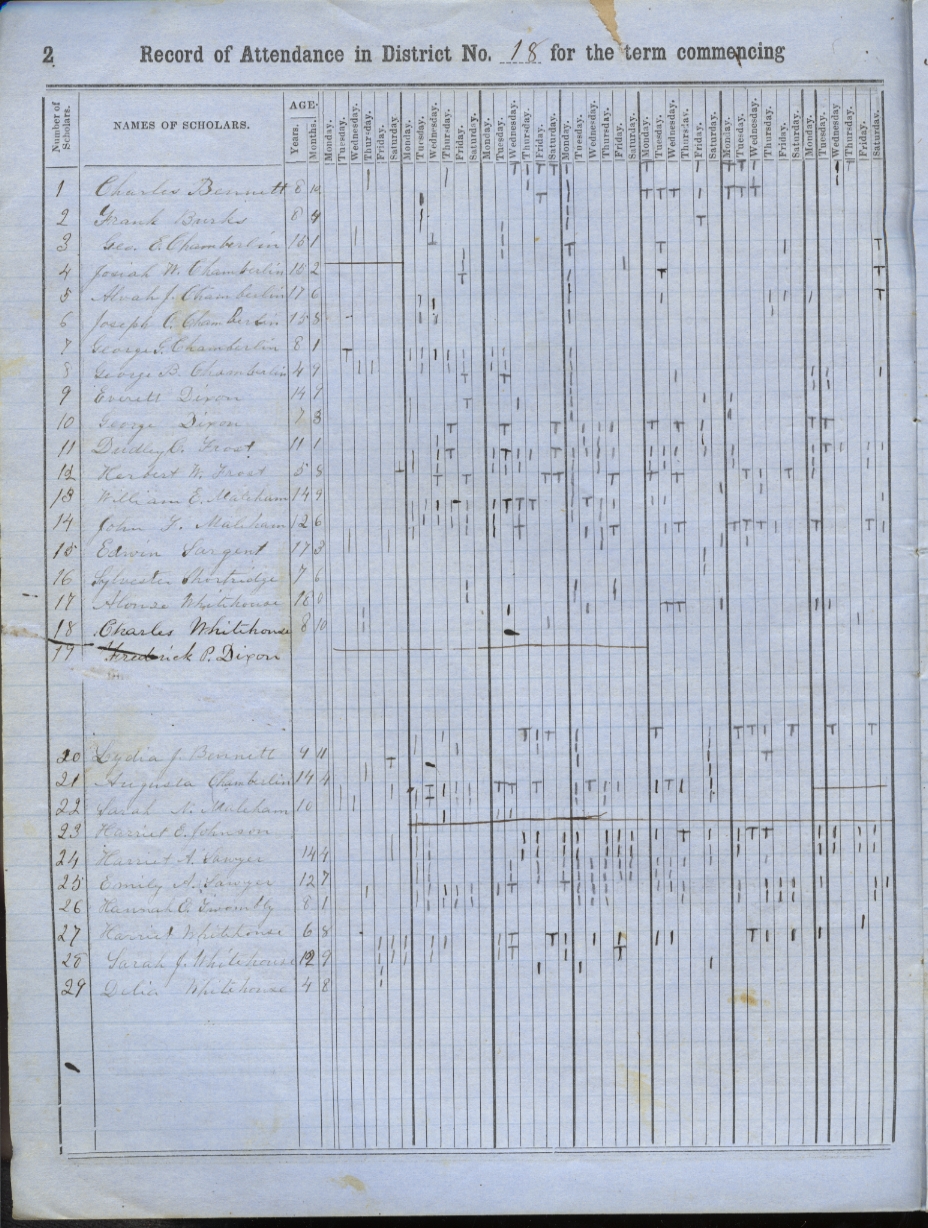 2 Record of Attendance in District No. 18 for the term commencing
Number of Scholars. NAMES OF SCHOLARS. AGE. Years. Months. Monday. Tuesday. Wednesday. Thursday. Friday. Saturday. Monday. Tuesday. Wednesday. Thursday. Friday. Saturday. Monday. Tuesday. Wednesday. Thursday. Friday. Saturday. Monday. Tuesday. Wednesday. Thursday. Friday. Saturday. Monday. Tuesday. Wednesday. Thursday. Friday. Saturday. Monday. Tuesday. Wednesday. Thursday. Friday. Saturday. Monday. Tuesday. Wednesday. Thursday. Friday. Saturday.
1 Charles Bennett 8 10
2 Frank Burks 8 4
3 Geo. E. Chamberlin 15 1
4 Josiah W. Chamberlin 15 2
5 Alvah J. Chamberlin 17 6
6 Joseph C. Chamberlin 15 8
7 George S. Chamberlin 8 1
8 George B. Chamberlin 4 9
9 Everett Dixon 14 7
10 George Dixon 7 3
11 Dudley C. Frost 11 1
12 Herbert W. Frost 5 8
13 William E. 14 9
14 John F. 12 6
15 Edwin Sargent 17 3
16 Sylvester Shortridge 7 6
17 Alonzo Whitehouse 18 0
18 Charles Whitehouse 8 10
19 Fredrick P. Dixon
20 Lydia J. Bennett 9 11
21 Augusta Chamberlin 14 4
22 Sarah N. 10
23 Harriet E. Johnson
24 Harriet A. Sawyer 14 4
25 Emily A. Sawyer 12 7
26 Hannah C. Twombly 8 1
27 Harriet Whitehouse 6 8
28 Sarah J. Whitehouse 12 9
29 Delia Whitehouse 4 8